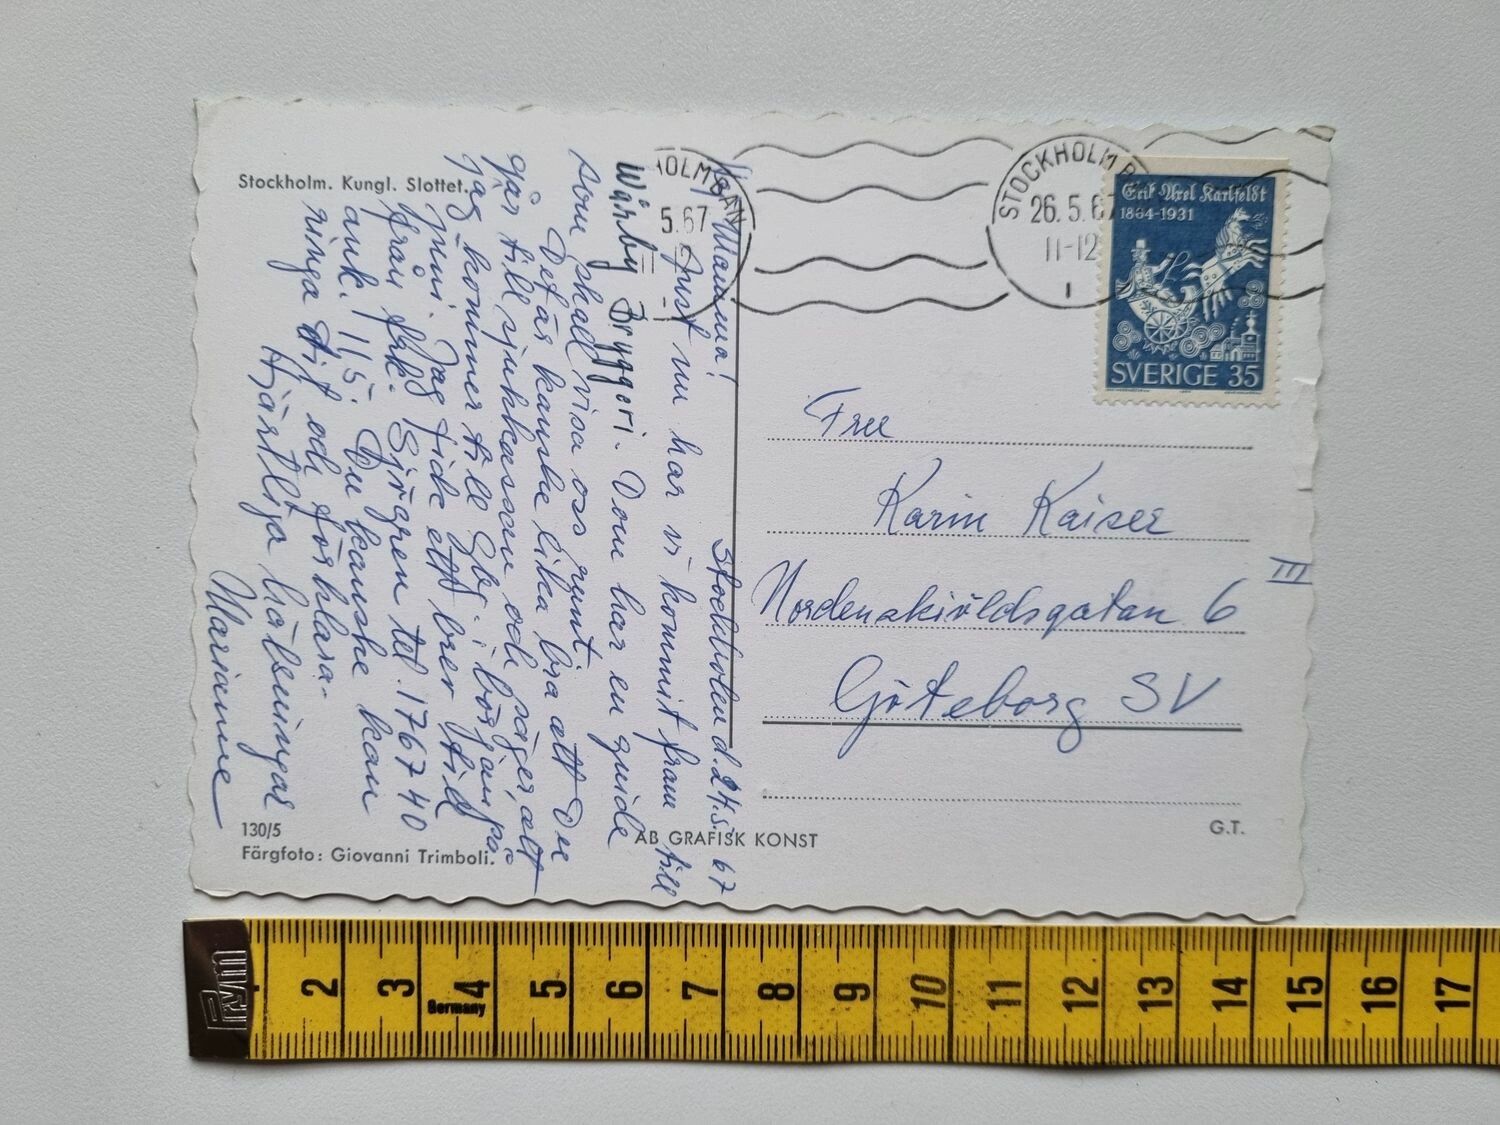 Stockholm. Kungl. Slottet.
STOCKHOLM BAN
26.5.67
11-12
1
OLM BAN
5.67
Erik Axel Karlfeldt
1864-1931
SVERIGE 35
Stockholm d. 24.5. 67
Mamma!
Just nu har vi kommit fram till
Wårby Bryggeri. Dom har en guide
som skall visa oss runt.
Det är kanske lika bra att Du
går till sjukkassan och säger, att
jag kommer till Gbg. i början på
juni. Jag fick ett brev
från frk. Sjögren tel. 176740
ank. 115. Du kanske kan
ringa dit och förklara.
Hjärtliga hälsningar
Marianne
Fru
Karin Kaiser
Nordenskiöldsgatan 6 III
Göteborg SV
130/5
Färgfoto: Giovanni Trimboli.
AB GRAFISK KONST
G.T.
Prym
Germany
2 3 4 5 6 7 8 9 10 11 12 13 14 15 16 17